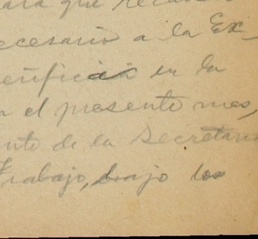 para que
necesario a la Ex_
verificar en la
el presente mes,
ente de la Secretaria
Trabajo, bajo los